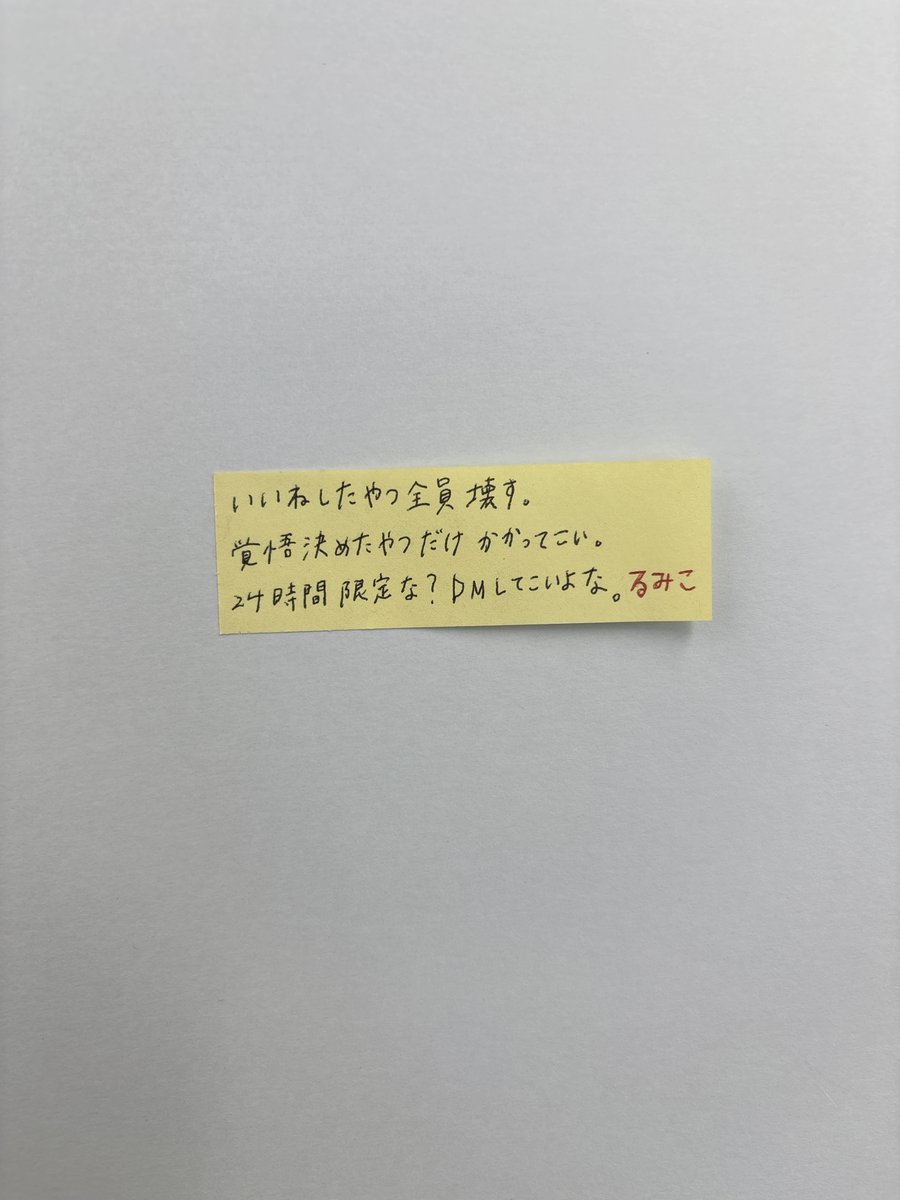 いいねしたやつ全員壊す。
覚悟決めたやつだけかかってこい。
24時間限定な?DMしてこいよな。るみこ